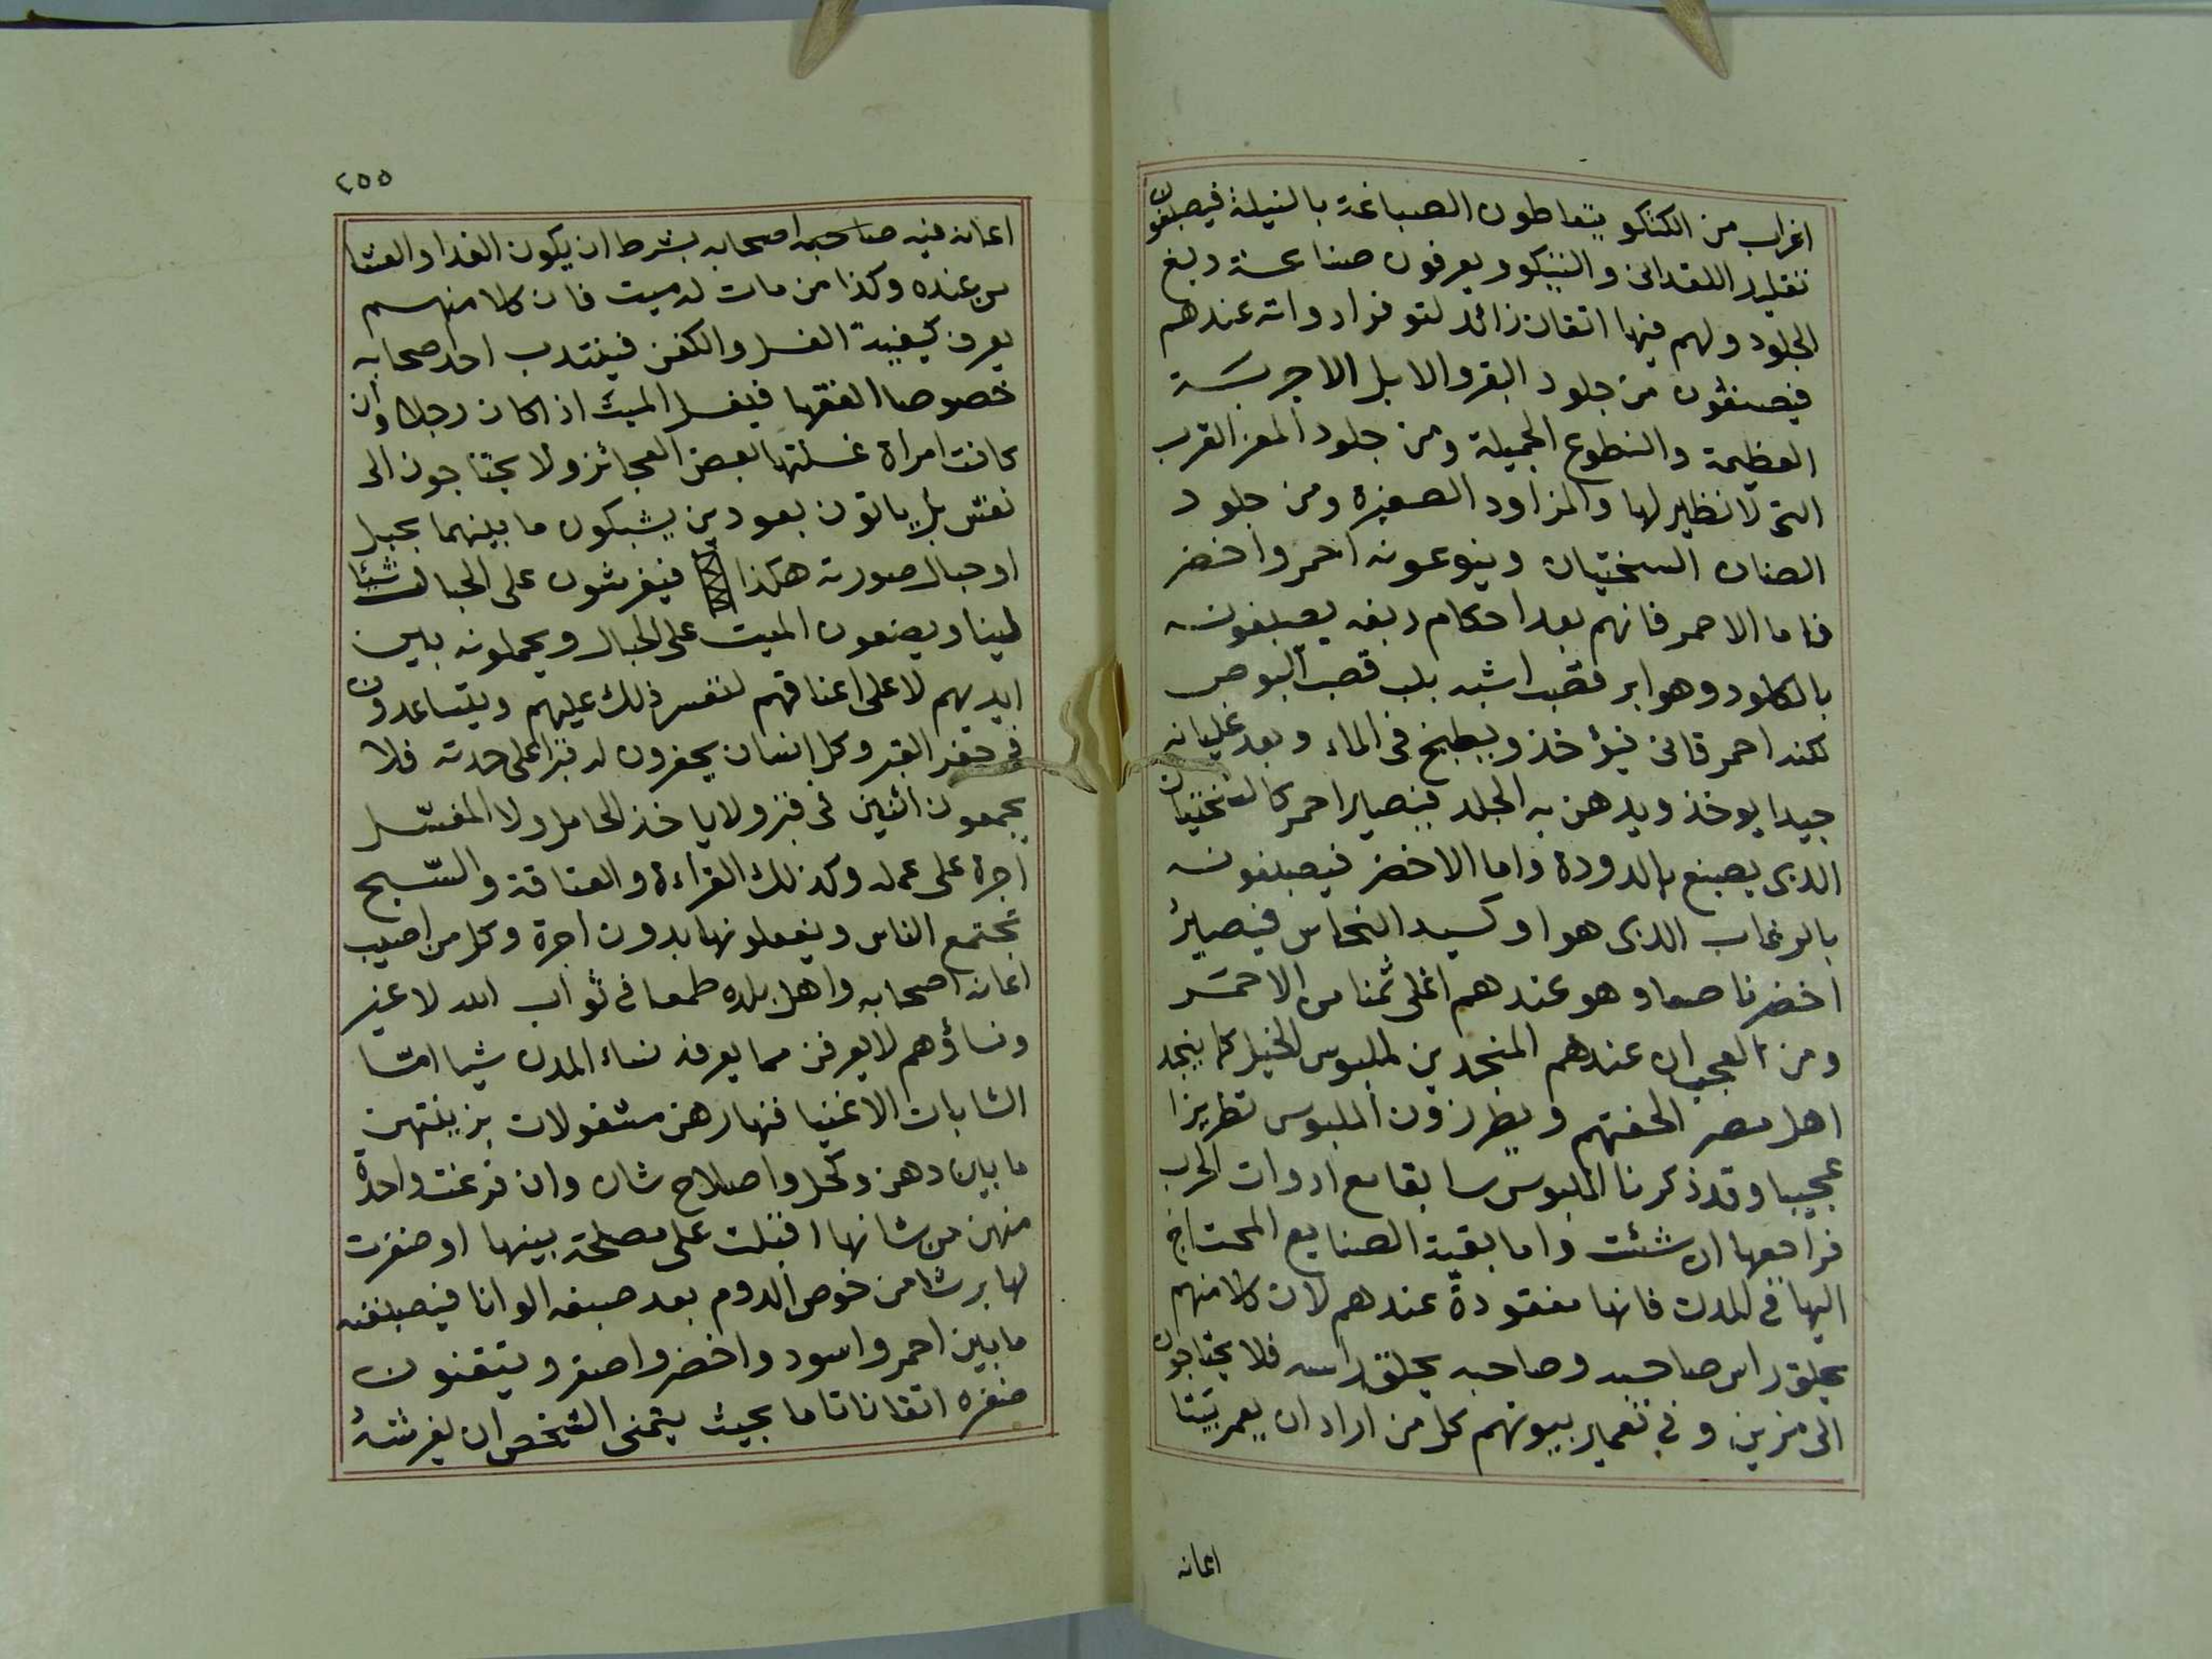 اغراب من الكتكو يتعاطون الصباغة بالنيلة فيصبغون
تقليد اللقدانى والتيكو ويعرفون صناعة دبغ
الجلود ولهم فيها اتقان زائد لتوفر ادواته عندهم
فيصنعون من جلود البقر والابل الاجربة
العظيمة والنطوع الجميلة ومن جلود المعز القرب
التى لا نظير لها والمزاود الصغيرة ومن جلود
الضان السختيان وينوعونه احمر واخضر
فاما الاحمر فانهم بعد احكام دبغه يصبغونه
بالكلود وهو ابر قصب اشبه بلب قصب البوص
لكنه احمر قانى فيؤخذ ويطبخ فى الماء وبعد غليانه
جيدا يوخذ ويدهن به الجلد فيصير احمر كالسختيان
الذى يصبغ بالدودة واما الاخضر فيصبغونه
بالرغاب الذى هو اوكسيد النحاس فيصير
اخضر ناصعا وهو عندهم اغلى ثمنا من الاحمر
ومن العجب ان عندهم المنجدين لملبوس الخيل كما ينجد
اهل مصر الحفتهم ويطرزون الملبوس تطريزا
عجيبا وقد ذكرنا الملبوس سابقا مع ادوات الحرب
فراجعها ان شئت واما بقية الصنايع المحتاج
اليها فى المدن فانها مفقودة عندهم لان كلا منهم
يحلق راس صاحبه وصاحبه يحلق راسه فلا يحتاجون
الى مزين وفى تعمير بيوتهم كل من اراد ان يعمر بيتا
اعانه
٢٥٥
اعانه فيه صاحبه اصحابه بشرط ان يكون الغدا والعشا
من عنده وكذا من مات له ميت فان كلا منهم
يعرف كيفية الغسل والكفن فينتدب احد صحابه
خصوصا الفقها فيغسل الميت اذا كان رجلا وان
كانت امراة غسلتها بعض العجائز ولا يحتاجون الى
نعش بل ياتون بعودين يشبكون ما بينهما بحبل
او حبال صورته هكذا فيفرشون على الحبال شيئا
لينا ويضعون الميت على الحبال ويحملونه بين
ايديهم لا على اعناقهم لتعسر ذلك عليهم ويتساعدون
فى حفر القبر وكل انسان يحفرون له قبرا على حدته فلا
يجمعون اثنين فى قبر ولا ياخذ الحامل ولا المغسل
اجرة على عمله وكذلك القراءة والعتاقة والتسبيح
تجتمع الناس ويفعلونها بدون اجرة وكل من اصيب
اعانه اصحابه واهل بلده طمعا فى ثواب الله لا غير
ونساؤهم لا يعرفن مما يعرفه نساء المدن شيا امّا
الشابات الاغنيا فنهارهن مشغولات بزينتهن
ما بين دهن وكحل واصلاح شان وان فرغت واحدة
منهن من شانها اقبلت على مصلحة بيتها او ضفرت
لها برشا من خوص الدوم بعد صبغه الوانا فيصبغنه
ما بين احمر واسود واخضر واصفر ويتقنون
ضفره اتقانا تاما بحيث يتمنى الشخص ان يفرشه